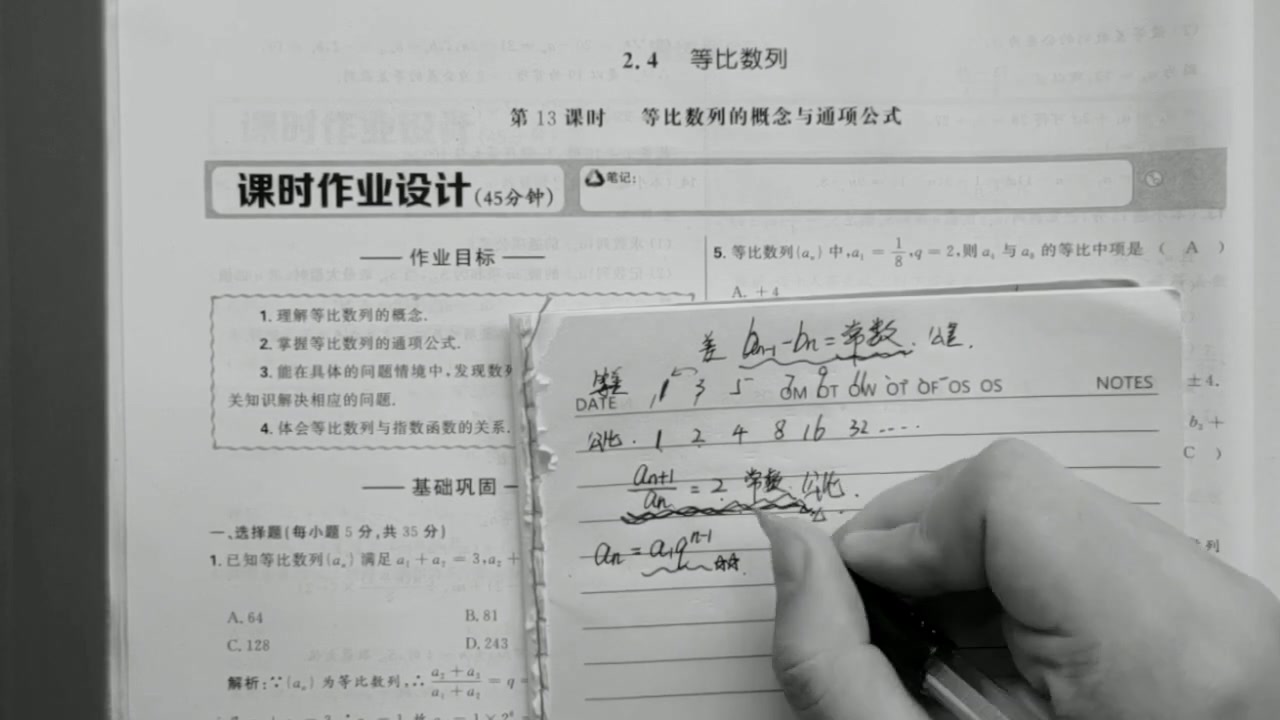 2.4 等比数列
第13课时 等比数列的概念与通项公式
课时作业设计(45分钟)
笔记:
作业目标
1.理解等比数列的概念.
2.掌握等比数列的通项公式.
3.能在具体的问题情境中,发现数列
关知识解决相应的问题.
4.体会等比数列与指数函数的关系.
基础巩固
一、选择题(每小题5分,共35分)
1.已知等比数列{aₙ}满足a₁+a₂=3,a₂+
A.64 B.81
C.128 D.243
解析:∵{aₙ}为等比数列,∴(a₂+a₃)/(a₁+a₂)=q=
5.等比数列{aₙ}中,a₁=1/8,q=2,则a₄与a₈的等比中项是 ( A )
A.+4
±4.
b₂+
C )
列
差 bₙ₊₁-bₙ=常数. 公差.
1 3 5 7 9
DATE OM OT OW OT OF OS OS NOTES
公比. 1 2 4 8 16 32 ....
aₙ₊₁/aₙ=2 常数 公比.
aₙ=a₁qⁿ⁻¹ ☆☆.